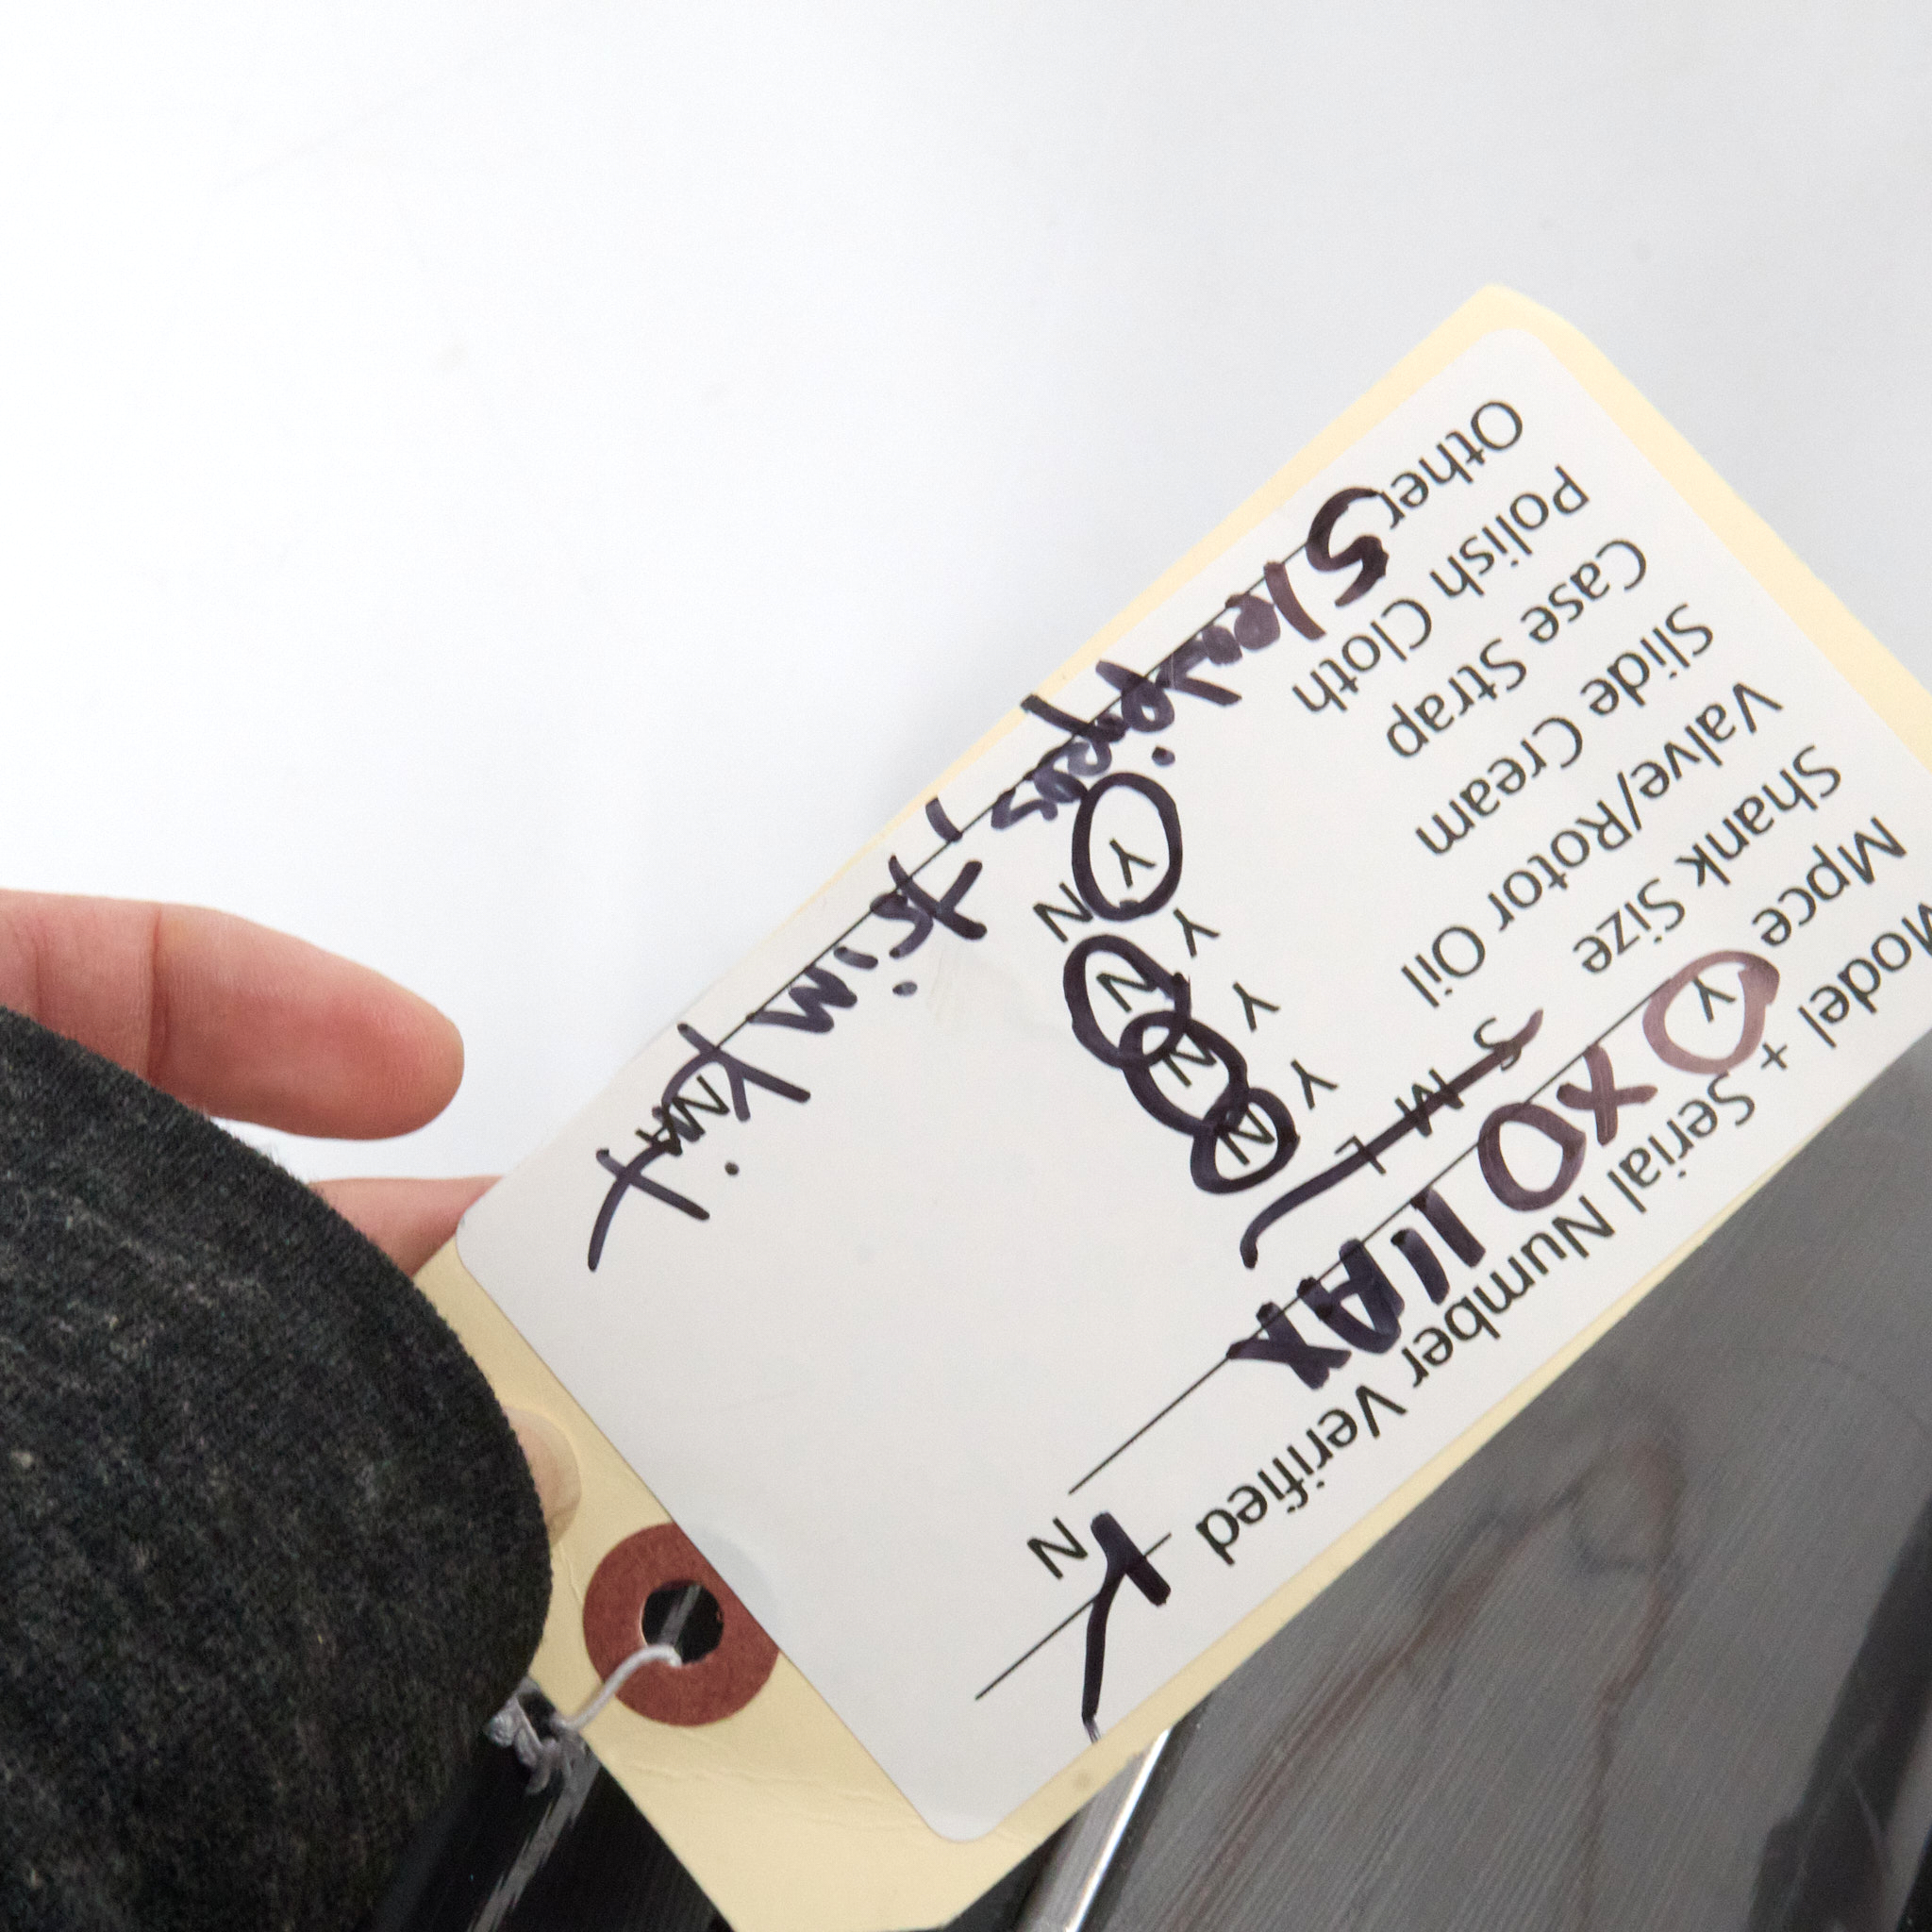 Model + Serial Number Verified
Mpce Y XO 11AX N
Shank Size S M L
Valve/Rotor Oil Y N
Slide Cream Y N
Case Strap Y N
Polish Cloth Y N
Other trim Kit N/A